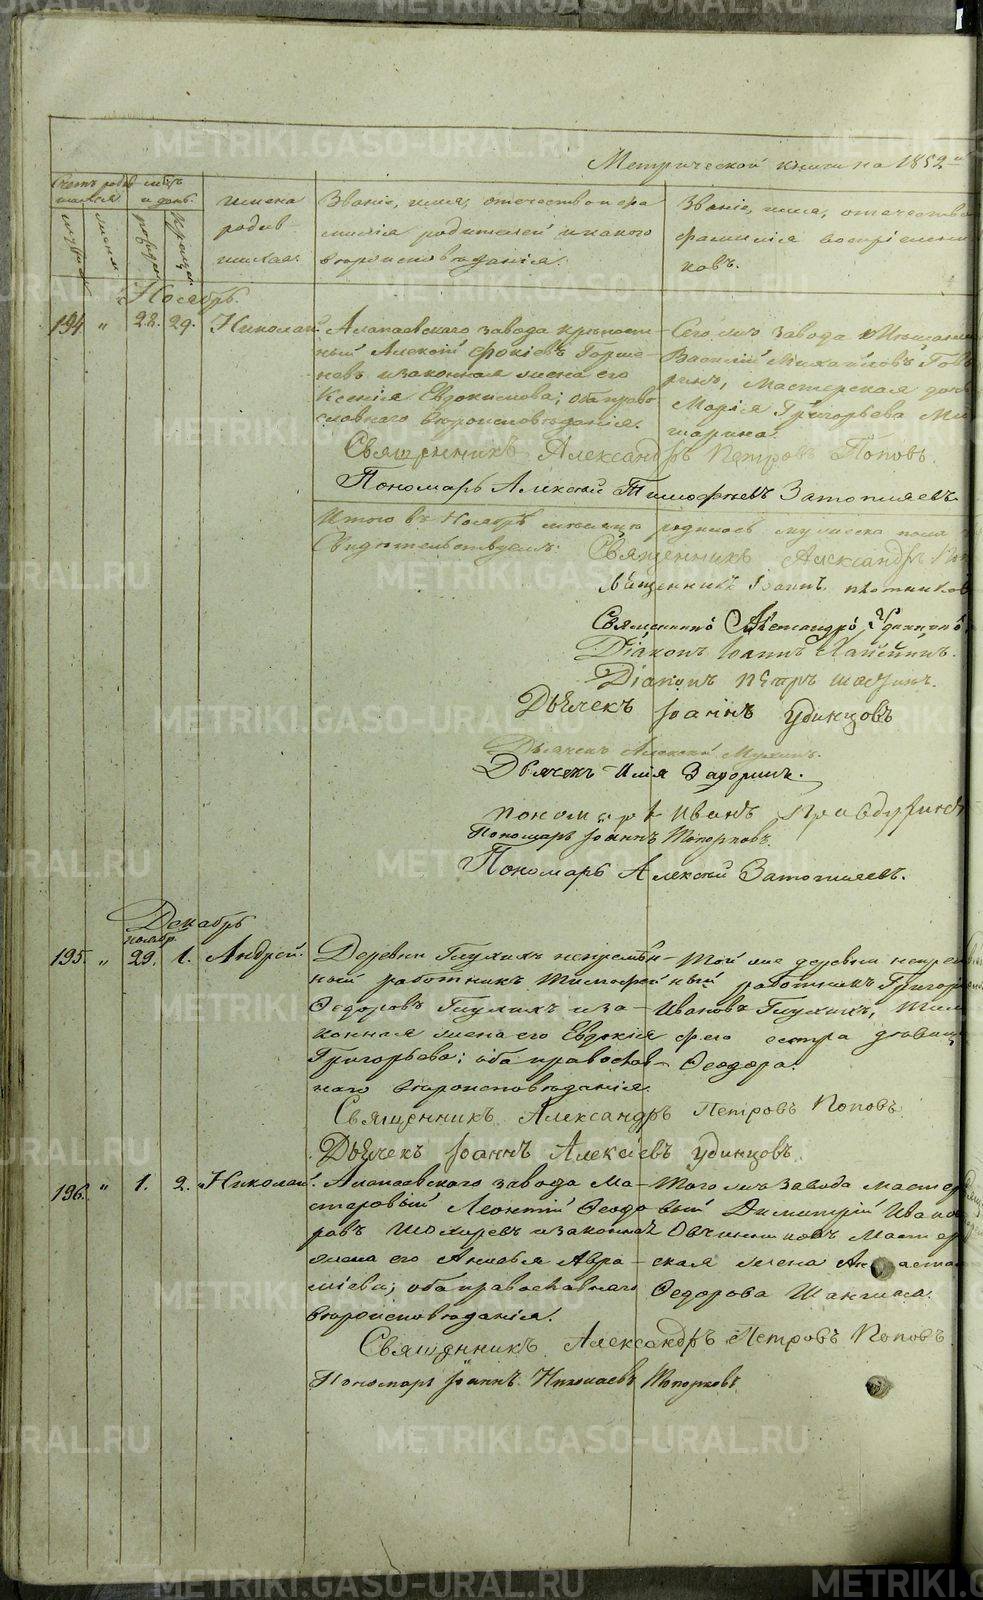 Метрической книги на 1852 й
Счетъ родив шихся.
мѣсяцъ и день.
мужеска
женска
рожденія
крещенія
Имена родив шихся.
Званіе, имя, отечество и фа
милія родителей и какого
вѣроисповѣданія.
Званіе, имя, отечество
фамилія воспріемни
ковъ.
Ноябрь.
194. " 28. 29. Николай.
Алапаевскаго завода крѣпост-
ный Алексій Фокіевъ Горше-
невъ и законная жена его
Ксенія Евдокимова; оба право
славнаго вѣроисповѣданія.
Сего же завода
Василій Михайловъ
Мастерская дочь
Марія Григорьева
Священникъ Александръ Петровъ Поповъ.
Пономарь Алексій Тимофеевъ Затопляевъ
Итого въ Ноябрѣ мѣсяцѣ родилось мужеска пола
Свидѣтельствуемъ: Священникъ Александръ
Священникъ Іоаннъ Плотниковъ
Священникъ Александръ Удинцовъ
Діаконъ Іоаннъ
Діаконъ Петръ
Дьячекъ Іоаннъ Удинцовъ
Дьячекъ Алексій Мухинъ.
Дьячекъ Илія Задоринъ.
Пономарь Иванъ Правдухинъ
Пономарь Іоаннъ Топорковъ.
Пономарь Алексій Затопляевъ.
Декабрь
ноябр.
195. " 29. 1. Андрей.
Деревни Глухихъ непремѣн-
ный работникъ Тимофей
Ѳедоровъ Глухихъ и за-
конная жена его Евдокія
Григорьева; оба православ-
наго вѣроисповѣданія.
Той же деревни непре
ный работникъ Григорій
Ивановъ Глухихъ, Тим
фея сестра дѣвица
Ѳеодора.
Священникъ Александръ Петровъ Поповъ.
Дьячекъ Іоаннъ Алексіевъ Удинцовъ.
196. " 1. 2. Николай.
Алапаевскаго завода Ма-
стеровый Леонтій Ѳеодо
ровъ Шохиревъ и законная
жена его Анисья Авра-
міева; оба православнаго
вѣроисповѣданія.
Того же завода мастеро
вый Димитрій Ивано
Овчинниковъ Мастер
ская жена Анастас
Ѳедорова
Священникъ Александръ Петровъ Поповъ
Пономарь Іоаннъ Николаевъ Топорковъ
METRIKI.GASO-URAL.RU